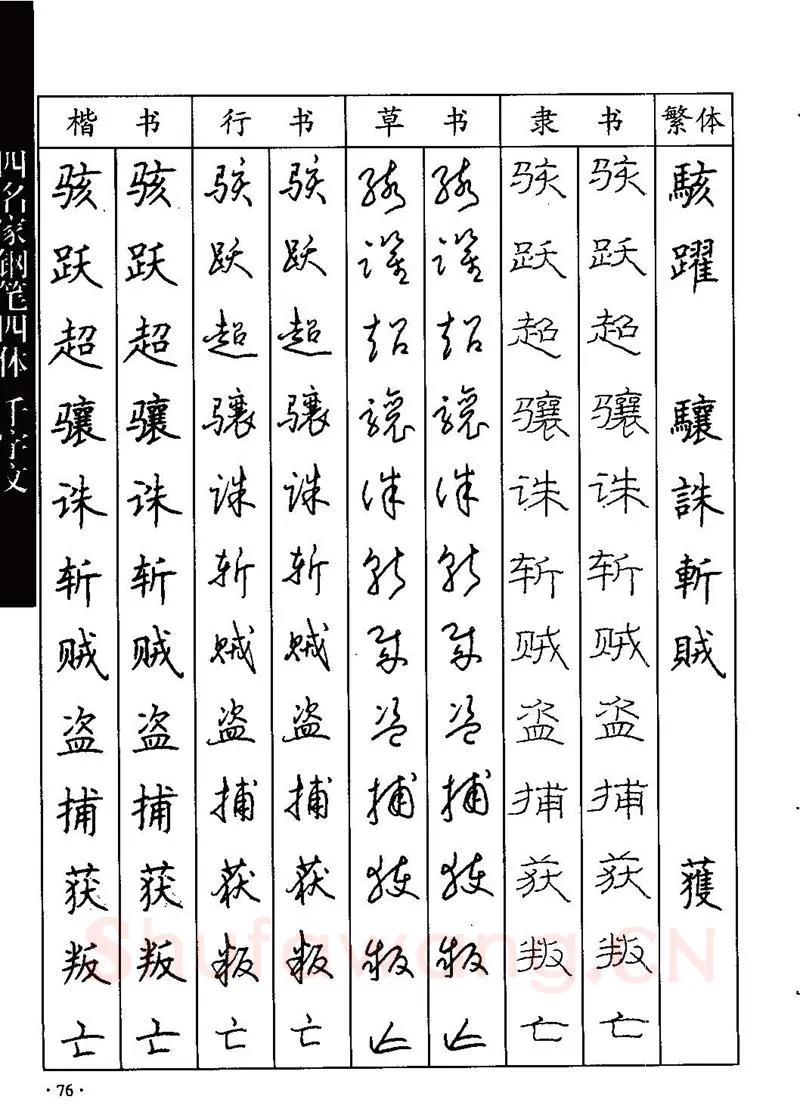 四名家钢笔四体 千字文
楷书 行书 草书 隶书 繁体
骇 骇 骇 骇 骇 骇 骇 骇 駭
跃 跃 跃 跃 跃 跃 跃 跃 躍
超 超 超 超 超 超 超 超
骧 骧 骧 骧 骧 骧 骧 骧 驤
诛 诛 诛 诛 诛 诛 诛 诛 誅
斩 斩 斩 斩 斩 斩 斩 斩 斬
贼 贼 贼 贼 贼 贼 贼 贼 賊
盗 盗 盗 盗 盗 盗 盗 盗
捕 捕 捕 捕 捕 捕 捕 捕
获 获 获 获 获 获 获 获 獲
叛 叛 叛 叛 叛 叛 叛 叛
亡 亡 亡 亡 亡 亡 亡 亡
Shufawang.CN
·76·